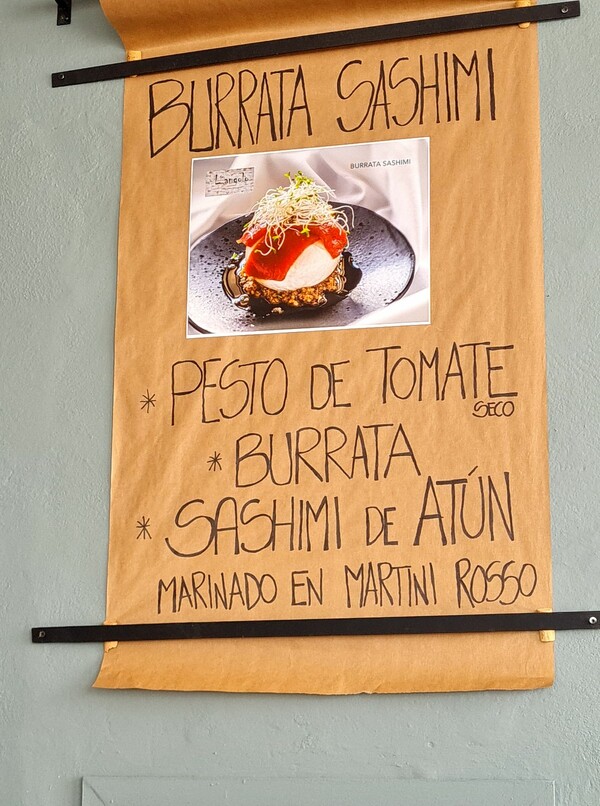 BURRATA SASHIMI
BURRATA SASHIMI
* PESTO DE TOMATE
SECO
* BURRATA
* SASHIMI DE ATÚN
MARINADO EN MARTINI ROSSO